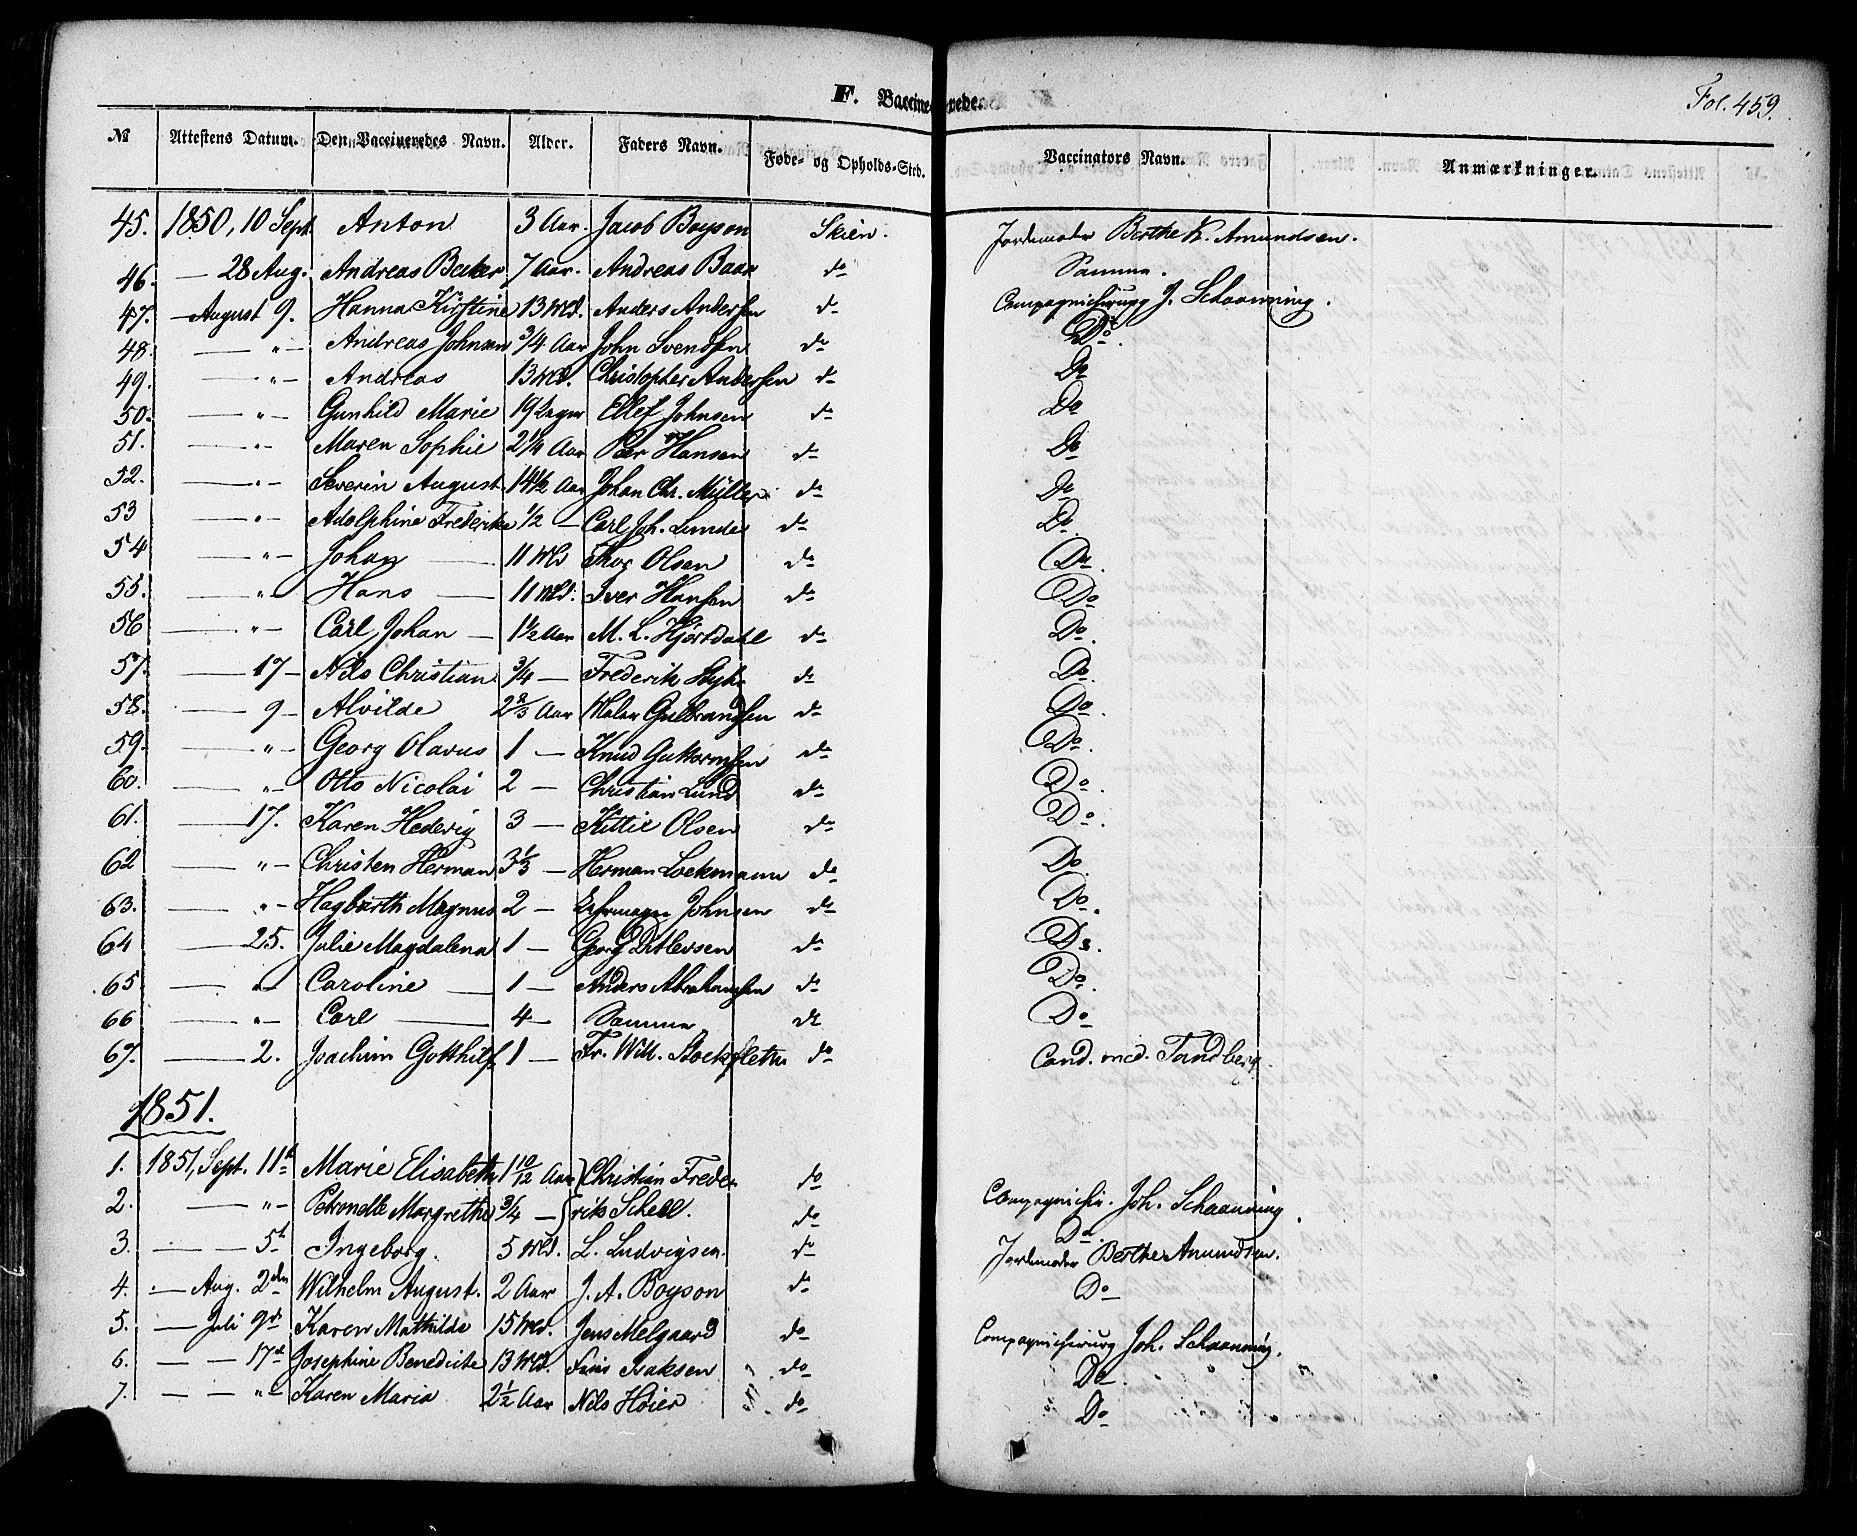 F. Vaccinerede.
Fol. 459.
№ Attestens Datum. Den Vaccineredes Navn. Alder. Faders Navn. Føde- og Opholds-Sted. Vaccinators Navn. Anmærkninger.
45. 1850, 10 Sept. Anton 3 Aar. Jacob Boyson Skien. Jordemoder Berthe K. Amundsen.
46. — 28 Aug. Andreas 7 Aar. Andreas Baar do Samme.
47. — August 9. Hanna Kirstine 13 Md. Anders Andersen do J. Schaanning.
48. — " — Andreas Johnsen 3/4 Aar John Svendsen do Do.
49. — " — Andreas 13 Md. Christopher Andersen do Do
50. — " — Gunhild Marie 19 Ellef Johnsen do Do
51. — " — Maren Sophie 2 1/4 Aar Peer Hansen do Do
52. — " — Severin August 14 1/2 Aar Johan Chr. Müller do Do
53 — " — Adolphine Frederike 1/2 — Carl Joh. Lunde do Do.
54 — " — Johan — 11 Md Thor Olsen do Do.
55. — " — Hans — 11 Md. Iver Hansen do Do
56 — " — Carl Johan — 1 1/2 Aar M. L. Hjortdahl do Do.
57. — 17 — Nils Christian 3/4 — Frederik do Do.
58. — 9 — Alvilde 2 2/3 Aar Gulbrandsen do Do.
59. — " — Georg Olavus 1 — Knud Guttormsen do Do.
60. — " — Otto Nicolai 2 — Christian Lund do Do.
61. — 17. Karen Hedevig 3 — Kittil Olsen do Do.
62 — " — Christen Herman 3 1/3 — Herman Lockmann do Do
63. — " — Hagbarth Magnus 2 — Johnsen do Do.
64 — 25. Julie Magdalena 1 — Georg Ditlevsen do Do.
65 — " Caroline — 1 — Anders Abrahamsen do Do.
66 — " — Carl — 4 — Samme do Do
67. — 2. Joachim Gotthilf 1 — Fr. Wilh. Stockfleth do Cand. med. Tandberg.
1851.
1. 1851, Sept. 11te Marie Elisabeth 1 10/12 Aar } Christian Frede- do Compagnichir. Joh. Schaanning.
2. — " — Petronelle Margrethe 3/4 — } rik Scheel. do Do.
3. — — 5te Ingeborg. 5 Md. L. Ludvigsen. do Jordemoder Berthe Amundsen.
4. — Aug. 2den Wilhelm August. 2 Aar J. A. Boyson do Do
5. — Juli 9de Karen Mathilde 15 Md. Jens Melgaard do Compagnichirurg Joh. Schaanning.
6. — — 17de Josephine Benedicte 13 Md. Isaksen do Do.
7. — — " — Karen Maria 2 1/2 Aar Nils Høier do Do